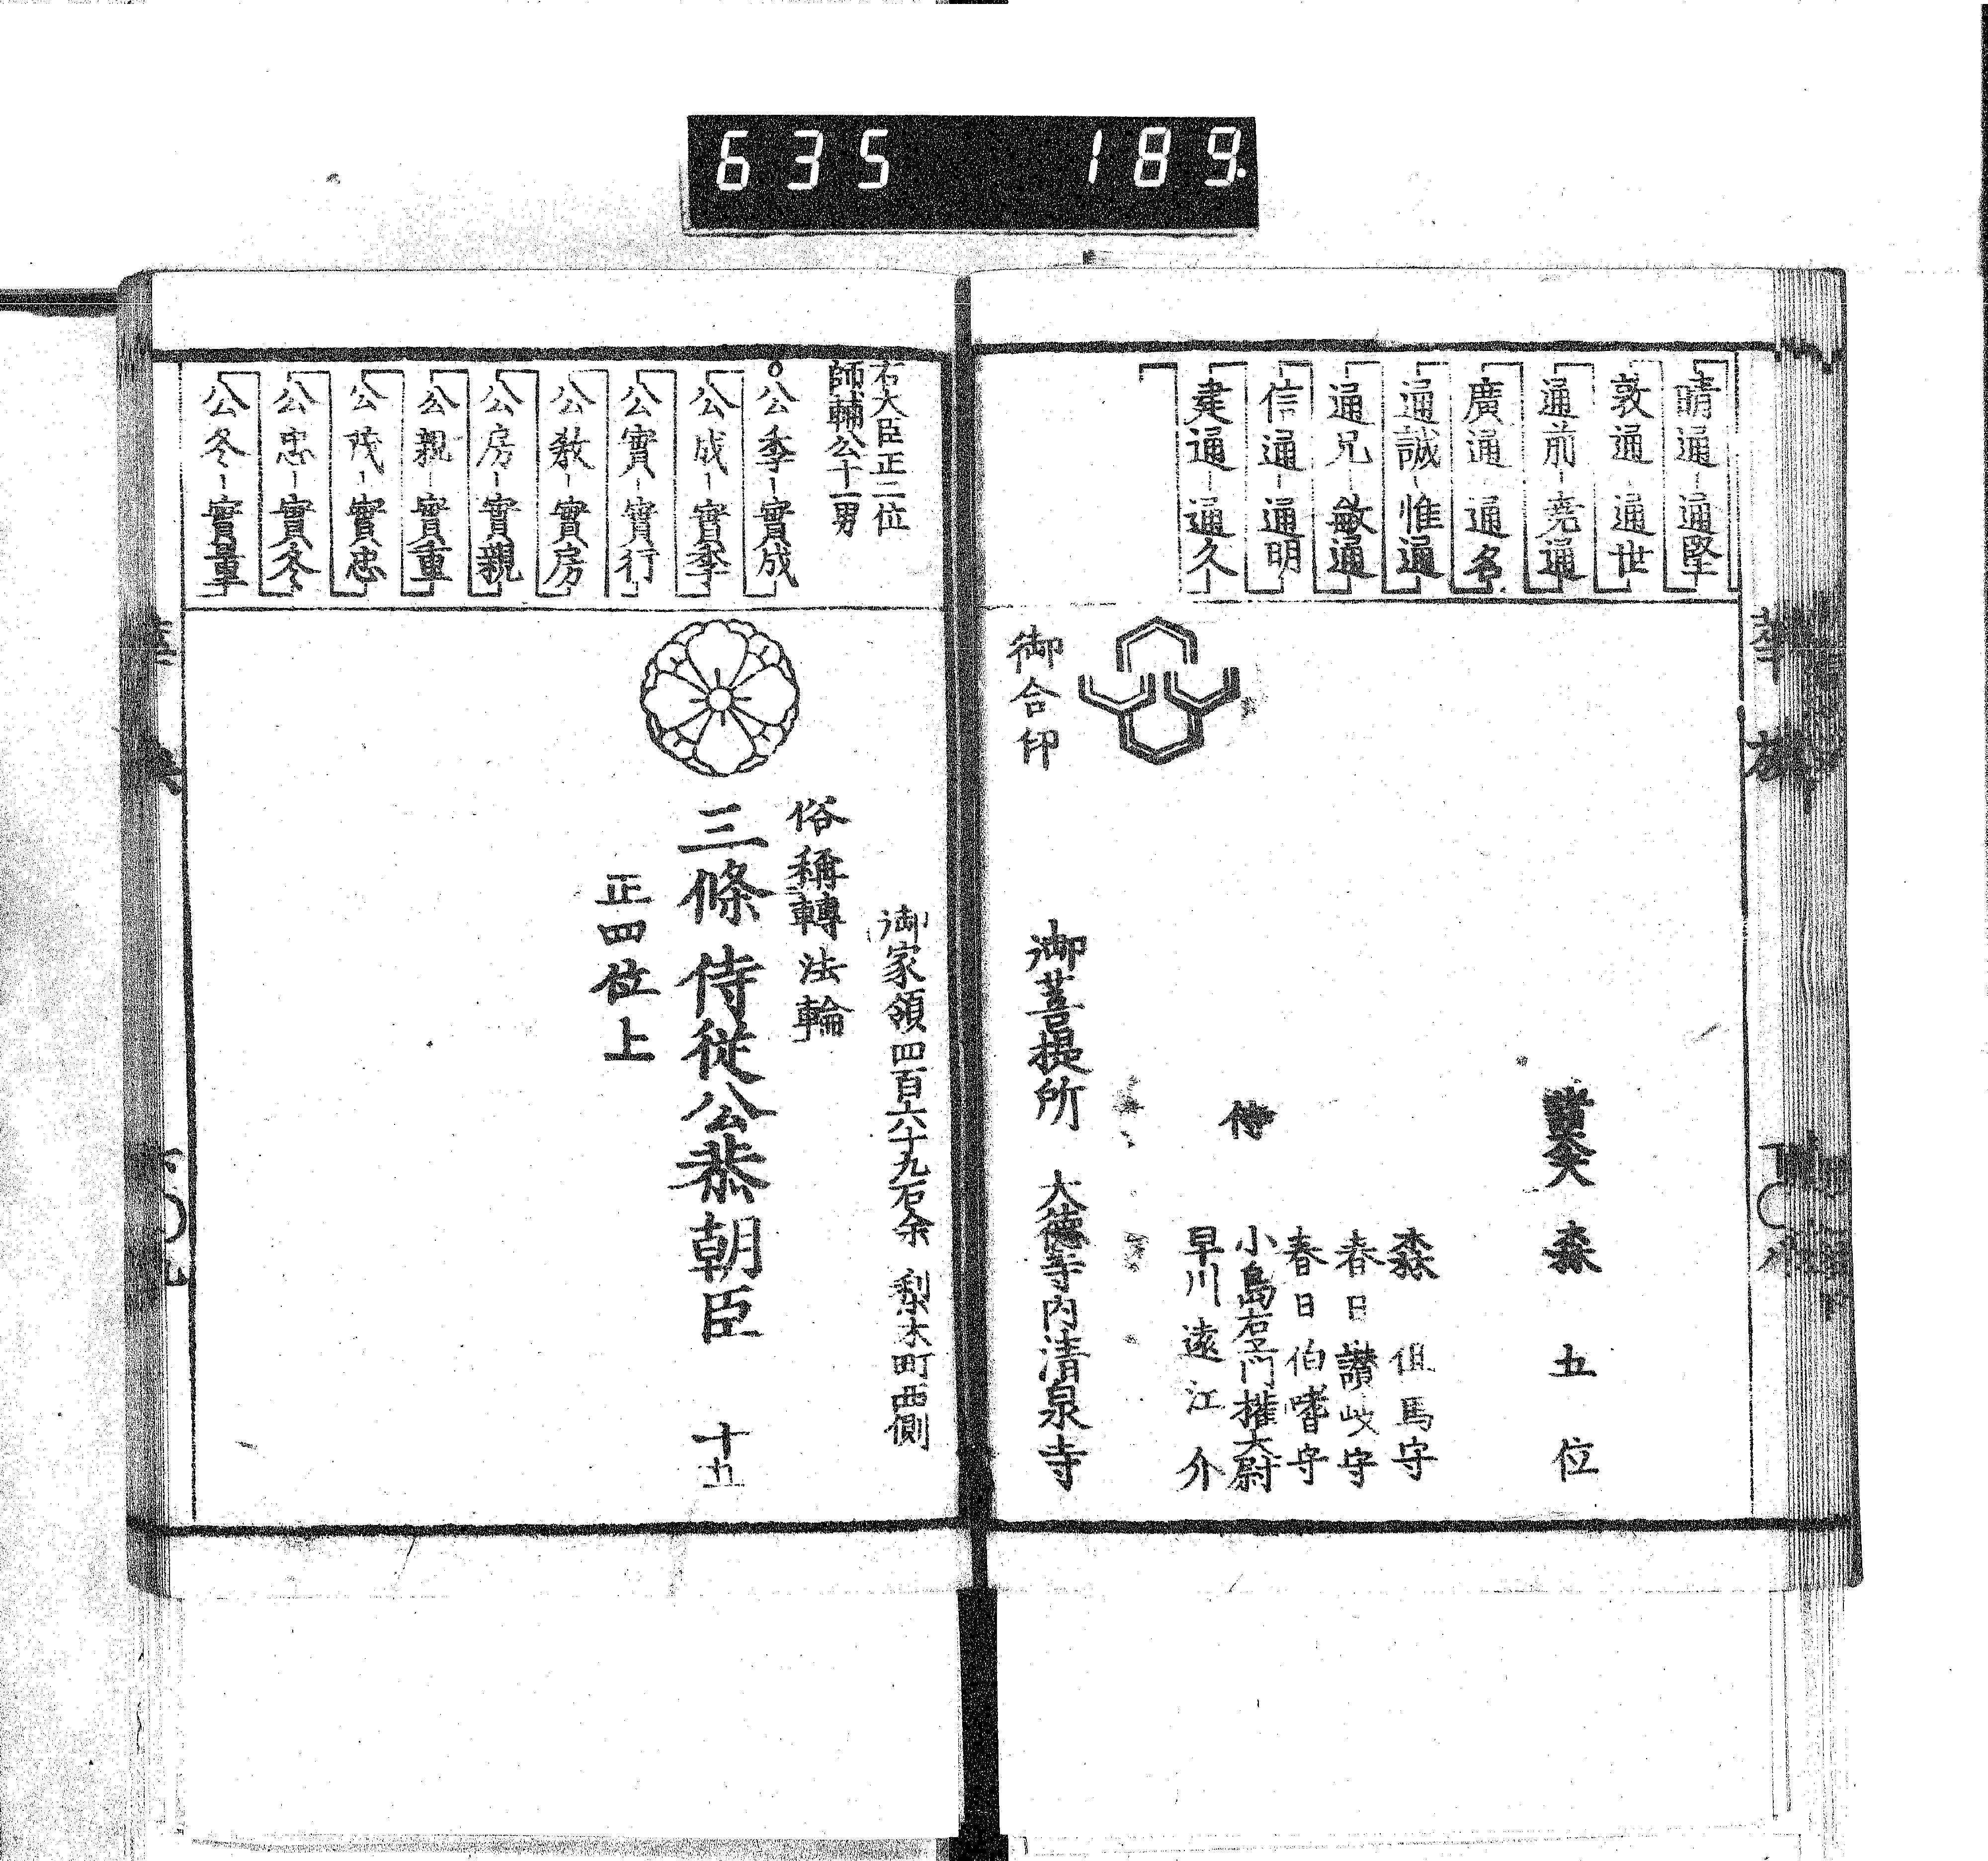 635 189.
晴通-通堅
敦通-通世
通前-堯通
廣通-通名
通誠-惟通
通兄-敏通
信通-通明
建通-通久
諸大夫 森 五位
森 但馬守
春日讃岐守
春日伯耆守
侍
小島右衛門權大尉
早川遠江介
御合印
御菩提所 大德寺內清泉寺
右大臣正二位
師輔公十一男
公季-實成
公成-實季
公實-實行
公教-實房
公房-實親
公親-實重
公茂-實忠
公忠-實冬
公冬-實量
御家領四百六十九石余 梨木町西側
俗稱轉法輪
三條侍從公恭朝臣 十五
正四位上